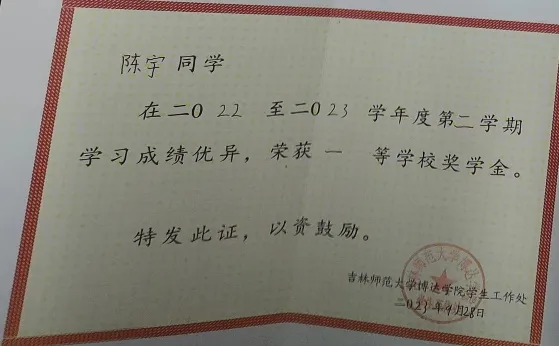 陈宇同学
在二0 22 至二0 23 学年度第二学期
学习成绩优异，荣获 一 等学校奖学金。
特发此证，以资鼓励。
吉林师范大学博达学院学生工作处
二023年9月28日